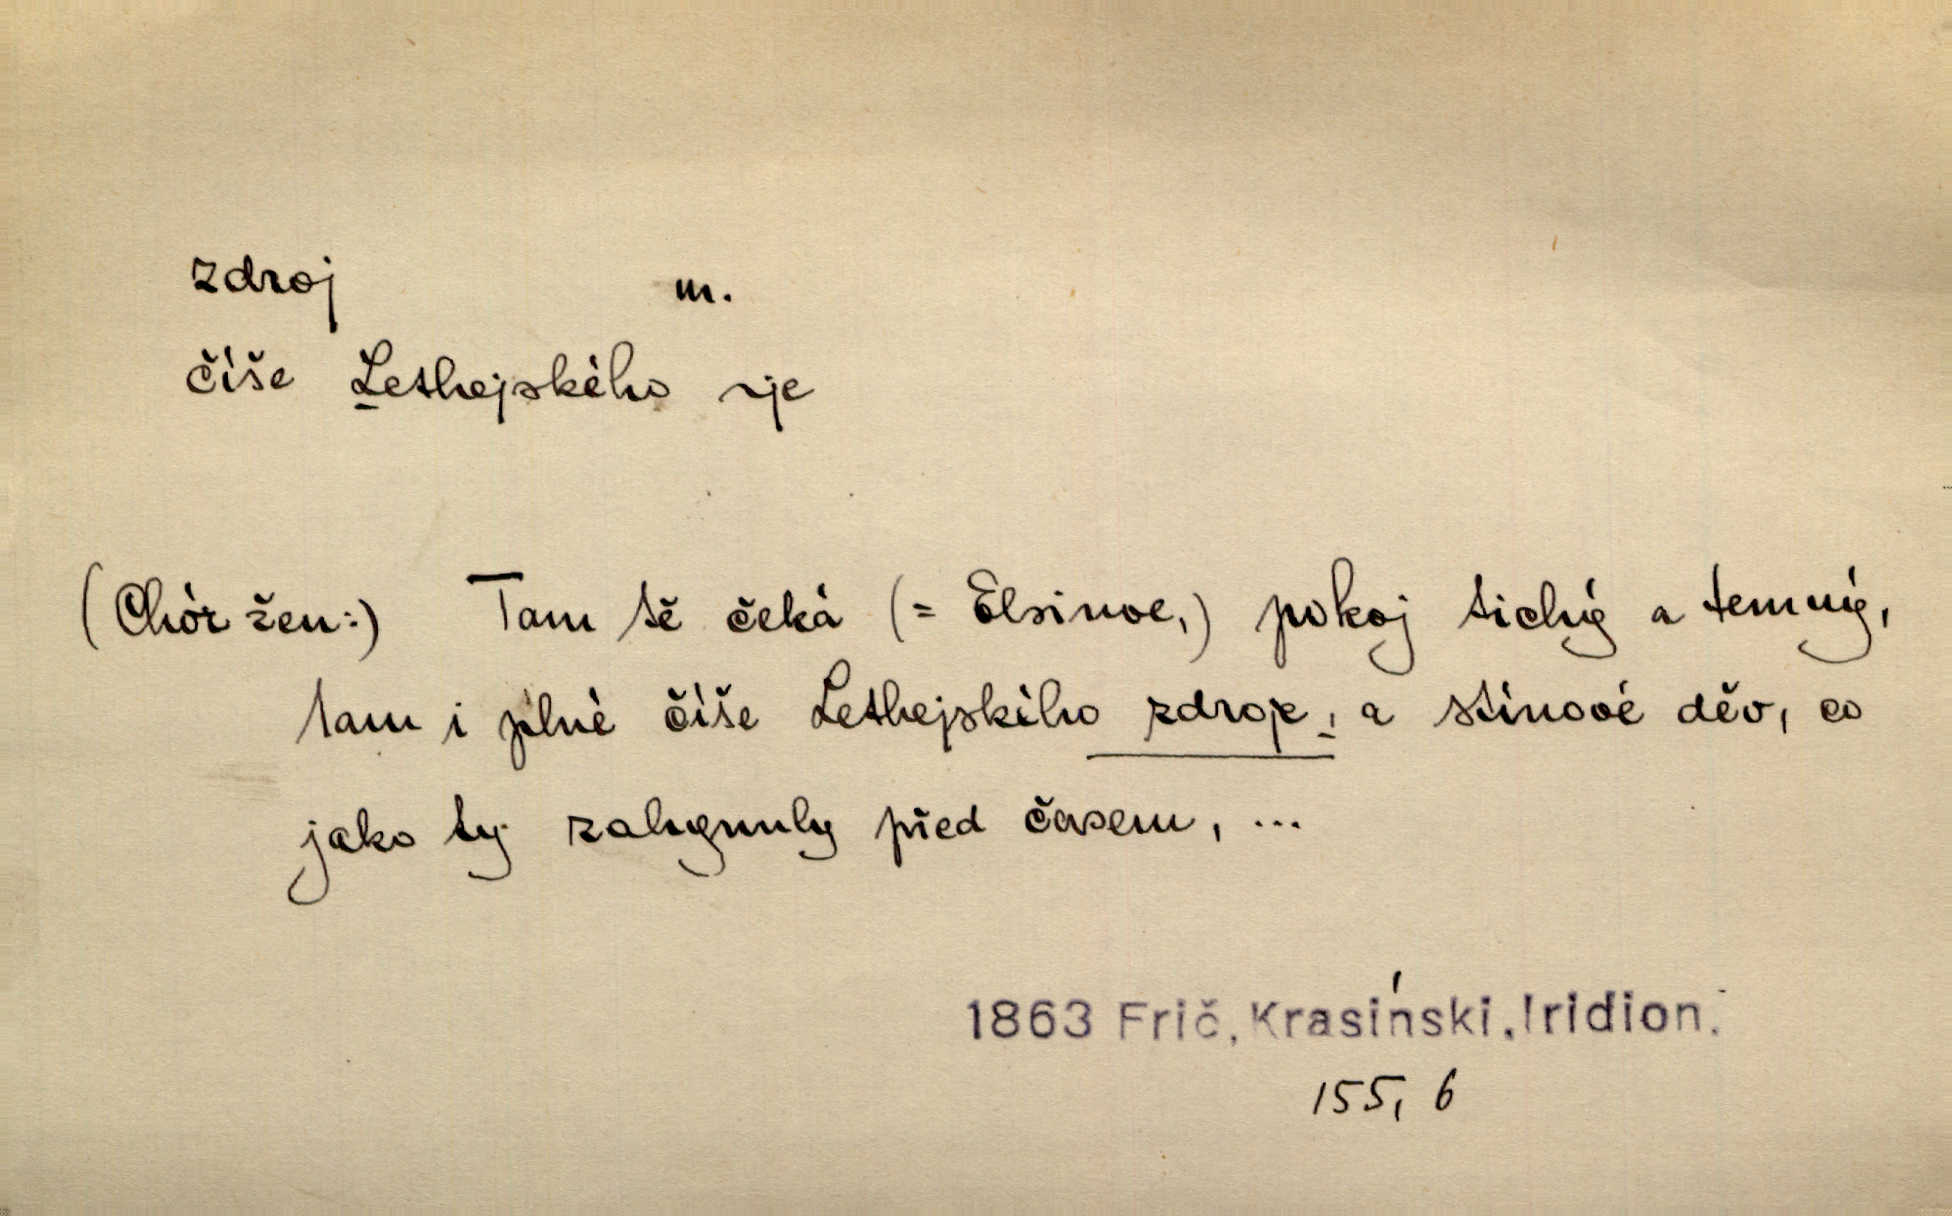 zdroj m.
číše Lethejského ~je
(Chór žen:) Tam tě čeká (= Elsinoe,) pokoj tichý a temný,
tam i plné číše Lethejského zdroje, a stínové děv, co
jako ty zahynuly před časem, ...
1863 Frič, Krasiński, Iridion.
155, 6